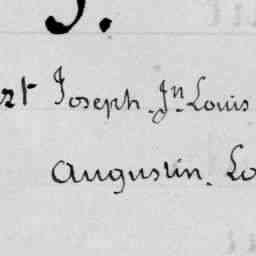 J.
rt Joseph Jn Louis
Augustin. Lo